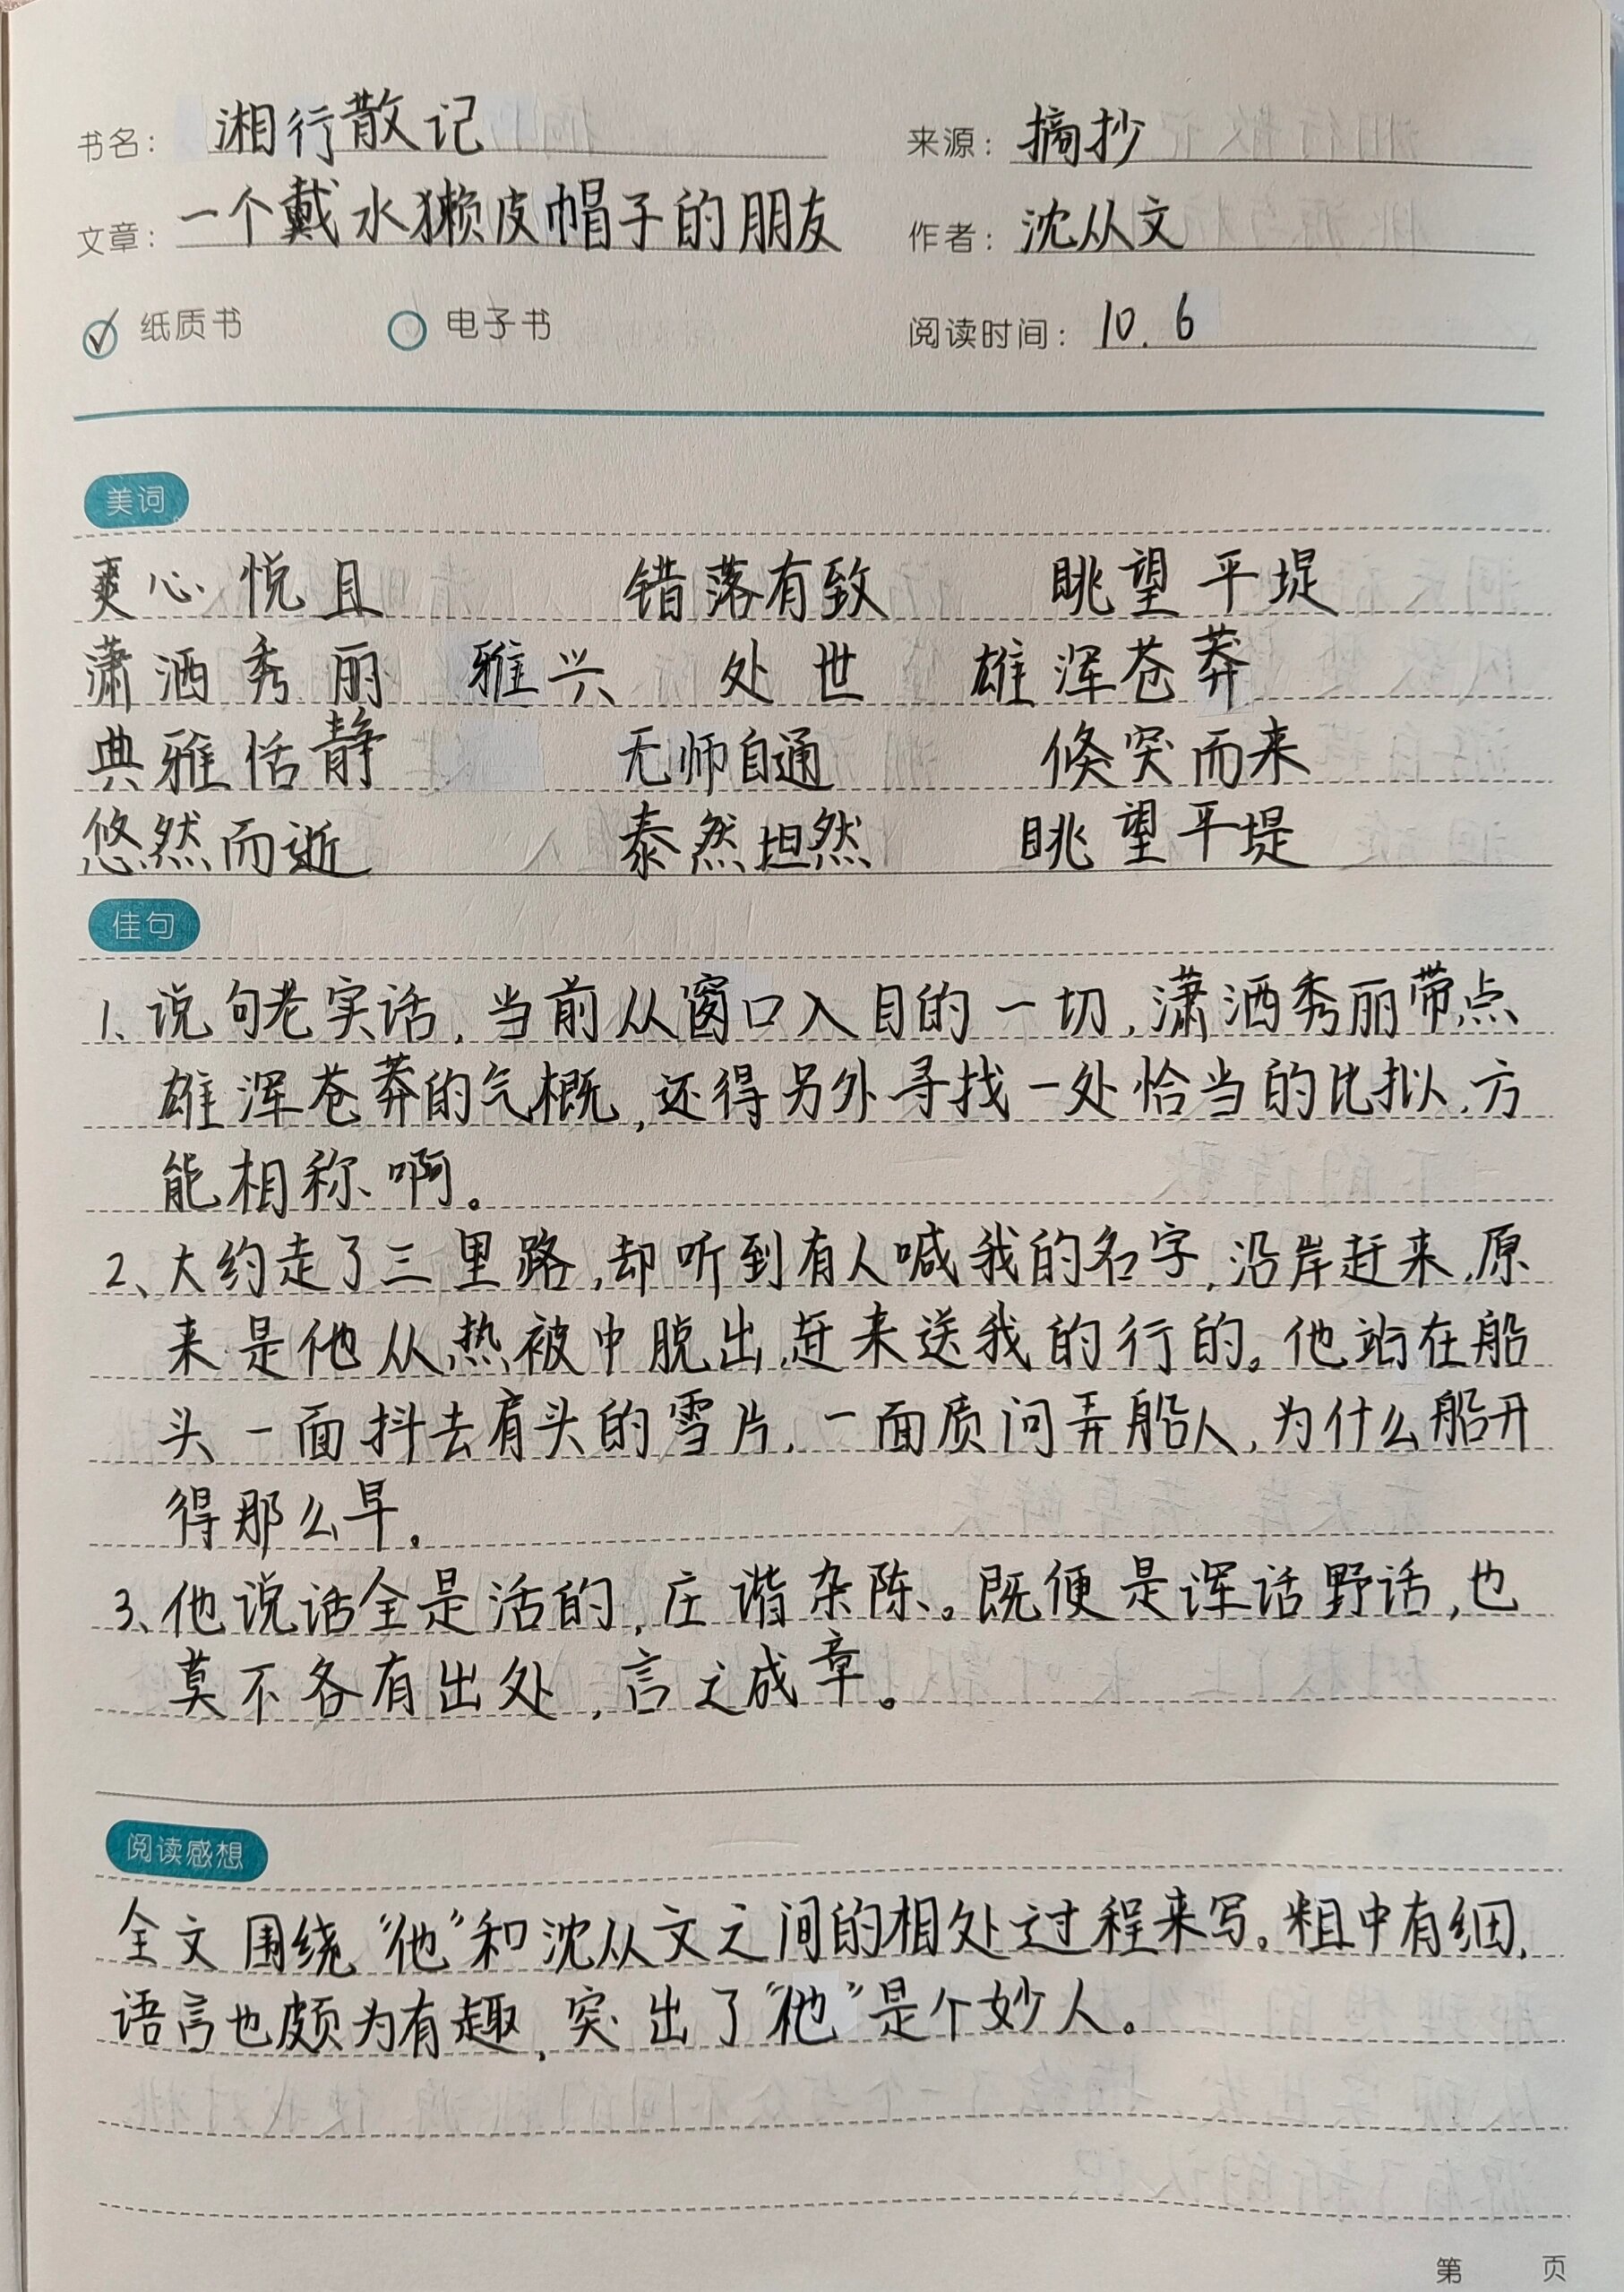 书名： 湘行散记 来源： 摘抄
文章： 一个戴水獭皮帽子的朋友 作者： 沈从文
纸质书 电子书 阅读时间： 10.6
美词
爽心悦目 错落有致 眺望平堤
潇洒秀丽 雅兴 处世 雄浑苍莽
典雅恬静 无师自通 倏突而来
悠然而逝 泰然坦然 眺望平堤
佳句
1、说句老实话，当前从窗口入目的一切，潇洒秀丽带点
雄浑苍莽的气概，还得另外寻找一处恰当的比拟，方
能相称啊。
2、大约走了三里路，却听到有人喊我的名字，沿岸赶来，原
来是他从热被中脱出，赶来送我的行的。他站在船
头一面抖去肩头的雪片，一面质问弄船人，为什么船开
得那么早。
3、他说话全是活的，庄谐杂陈。既便是诨话野话，也
莫不各有出处，言之成章。
阅读感想
全文围绕“他”和沈从文之间的相处过程来写。粗中有细，
语言也颇为有趣，突出了“他”是个妙人。
第 页